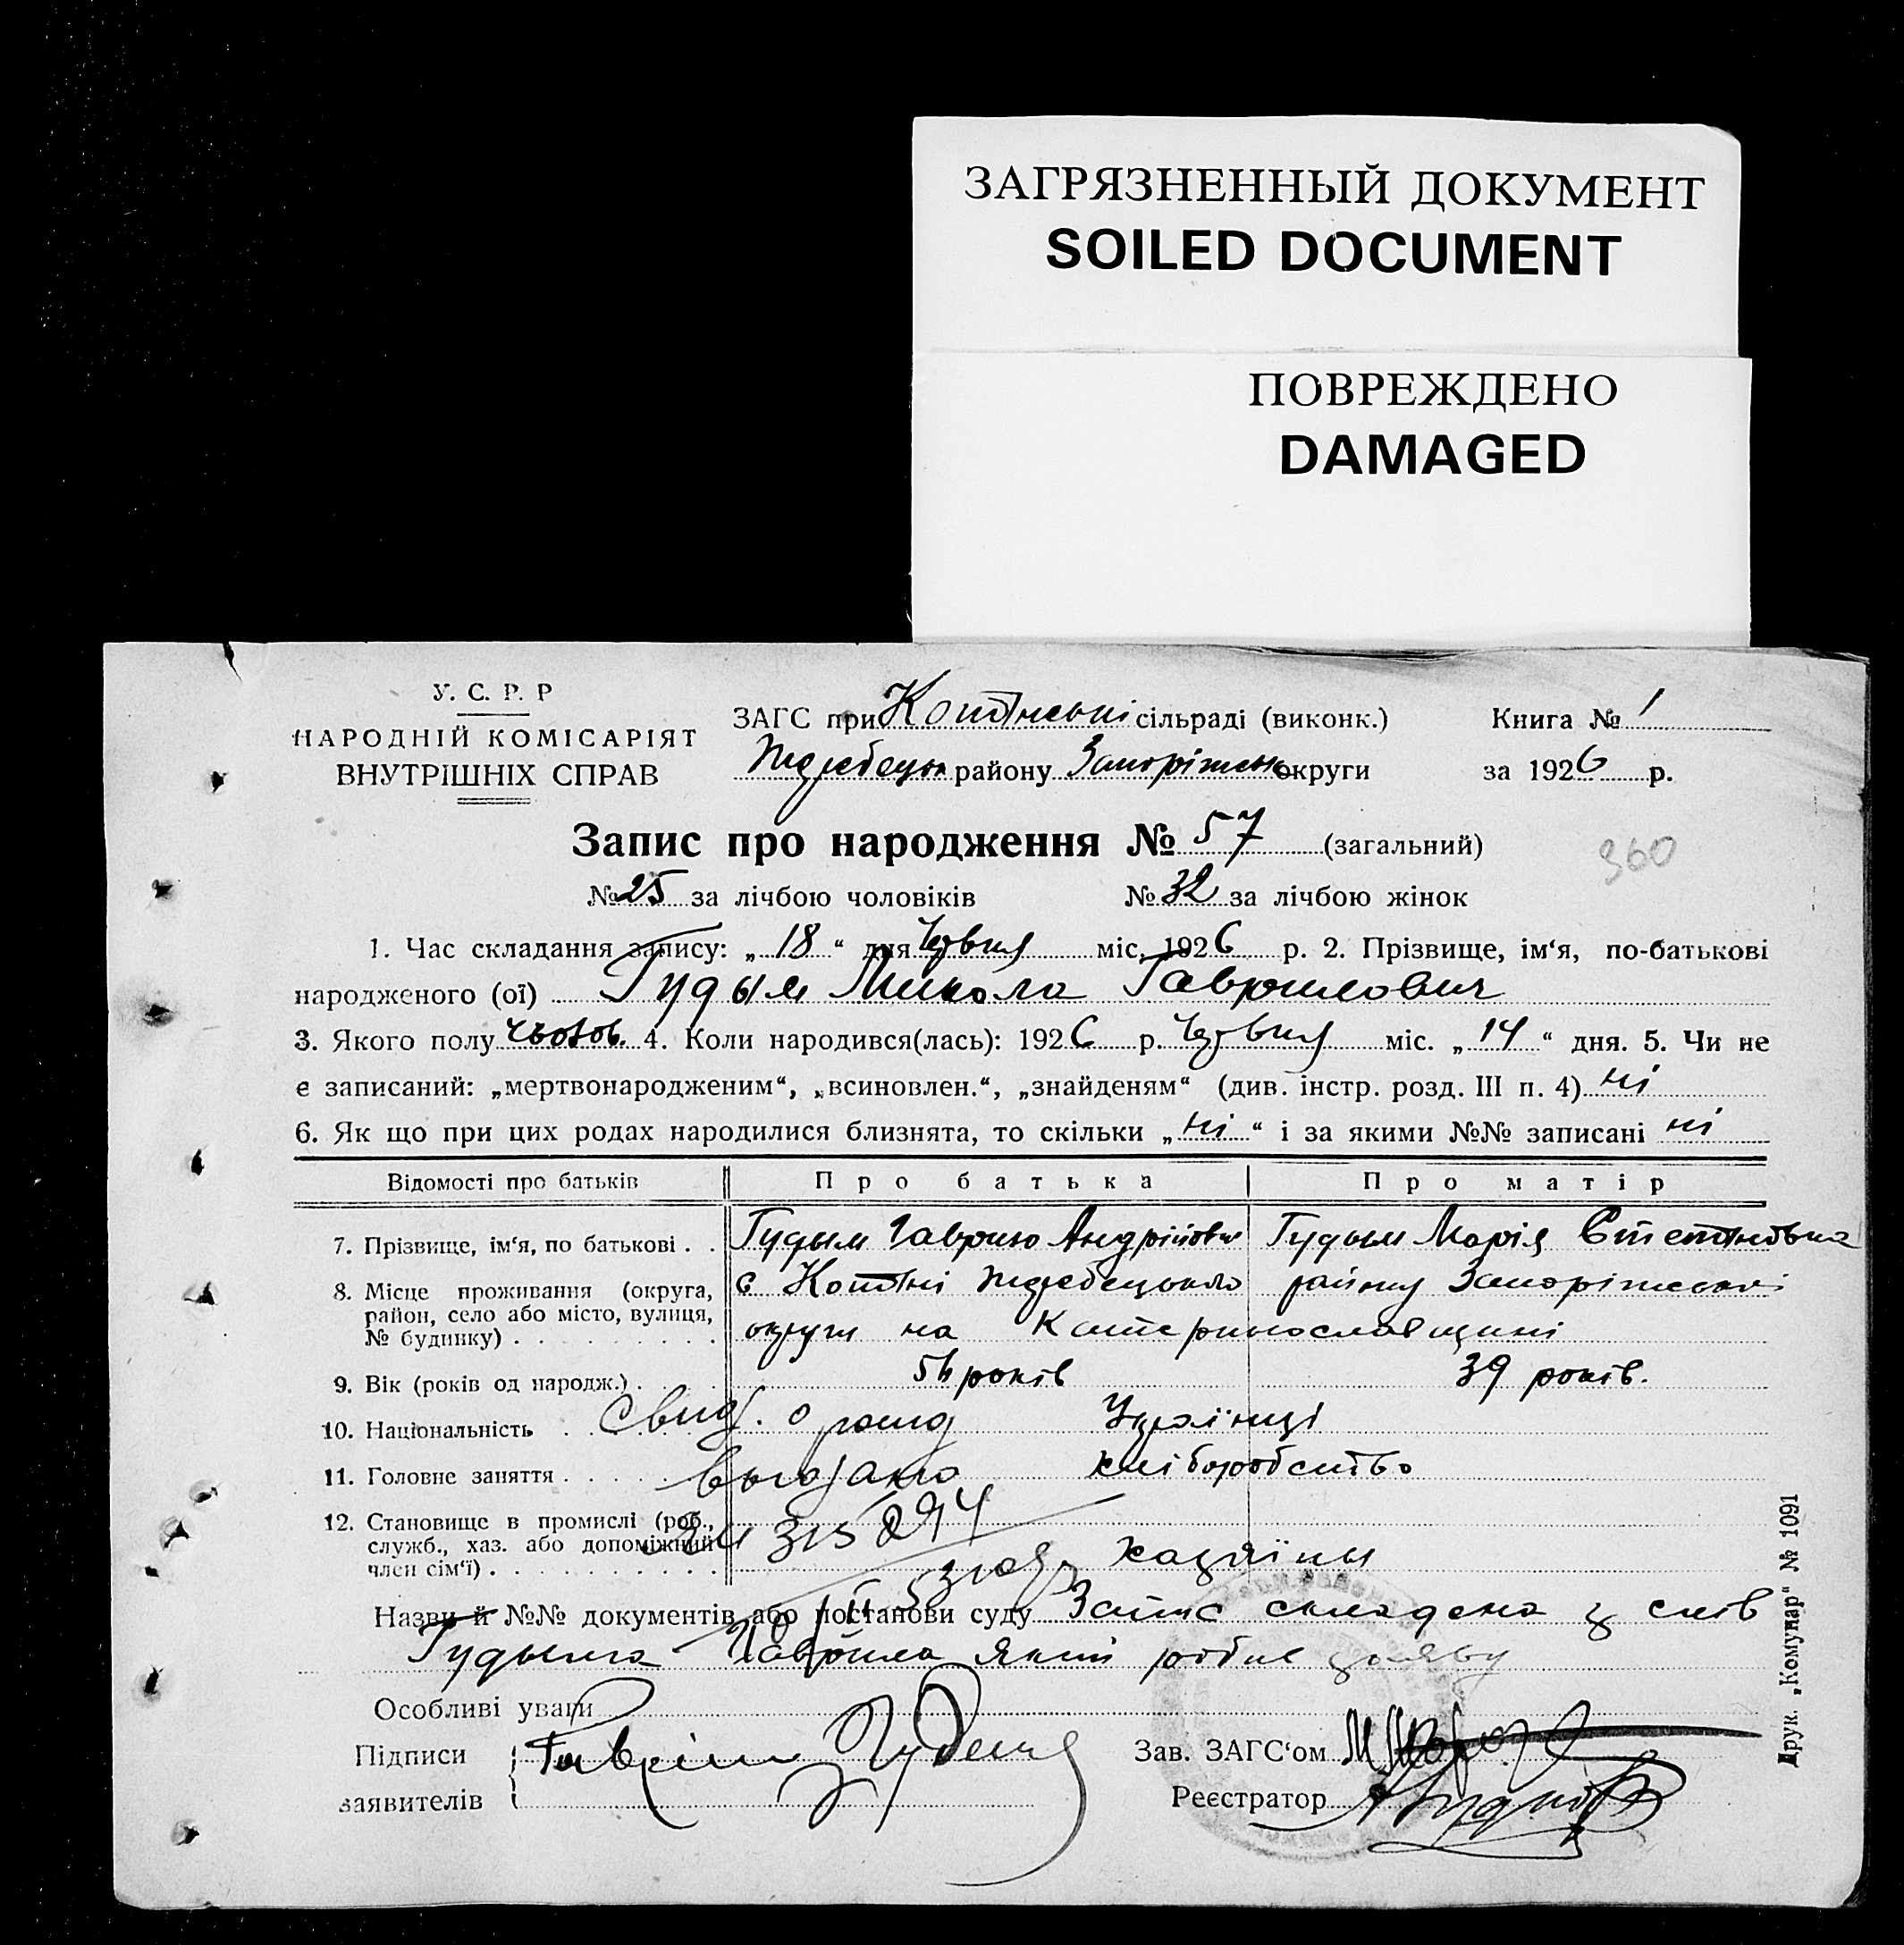 ЗАГРЯЗНЕННЫЙ ДОКУМЕНТ
SOILED DOCUMENT
ПОВРЕЖДЕНО
DAMAGED
У. С. Р. Р
НАРОДНІЙ КОМІСАРІЯТ
ВНУТРІШНІХ СПРАВ
ЗАГС при сільраді (виконк.) Книга № 1
району Запоріжськ округи за 1926 р.
Запис про народження № 57 (загальний)
360
№ 25 за лічбою чоловіків № 32 за лічбою жінок
1. Час складання запису: „ 18 “ дня червня міс. 1926 р. 2. Прізвище, ім‘я, по-батькові
народженого (ої) Гудым Микола Гаврилович
3. Якого полу чолов. 4. Коли народився(лась): 1926 р. червня міс. „ 14 “ дня. 5. Чи не
є записаний: „мертвонародженим“, „всиновлен.“, „знайденям“ (див. інстр. розд. III п. 4) ні
6. Як що при цих родах народилися близнята, то скільки „ ні “ і за якими №№ записані ні
Відомості про батьків Про батька Про матір
7. Прізвище, ім‘я, по батькові . . Гудым Гаврило Андрійович Гудым Марія Степановна
8. Місце проживання (округа, район, село або місто, вулиця, № будинку) . с. району Запоріжської
округи на Катеринославщині
9. Вік (років од народж.) . років 39 років.
10. Національність . Українці
11. Головне заняття . хліборобство
12. Становище в промислі (роб., служб., хаз. або допоміжний член сім‘ї) . хазяїны
Свид. о рожд
выдано
315294
Назви й №№ документів або постанови суду Запис складено з слів
Гудыма Гаврила який робив заяву
Особливі уваги
Підписи
заявителів
Зав. ЗАГС‘ом
Реєстратор
Друк. „Комунар“ № 1091